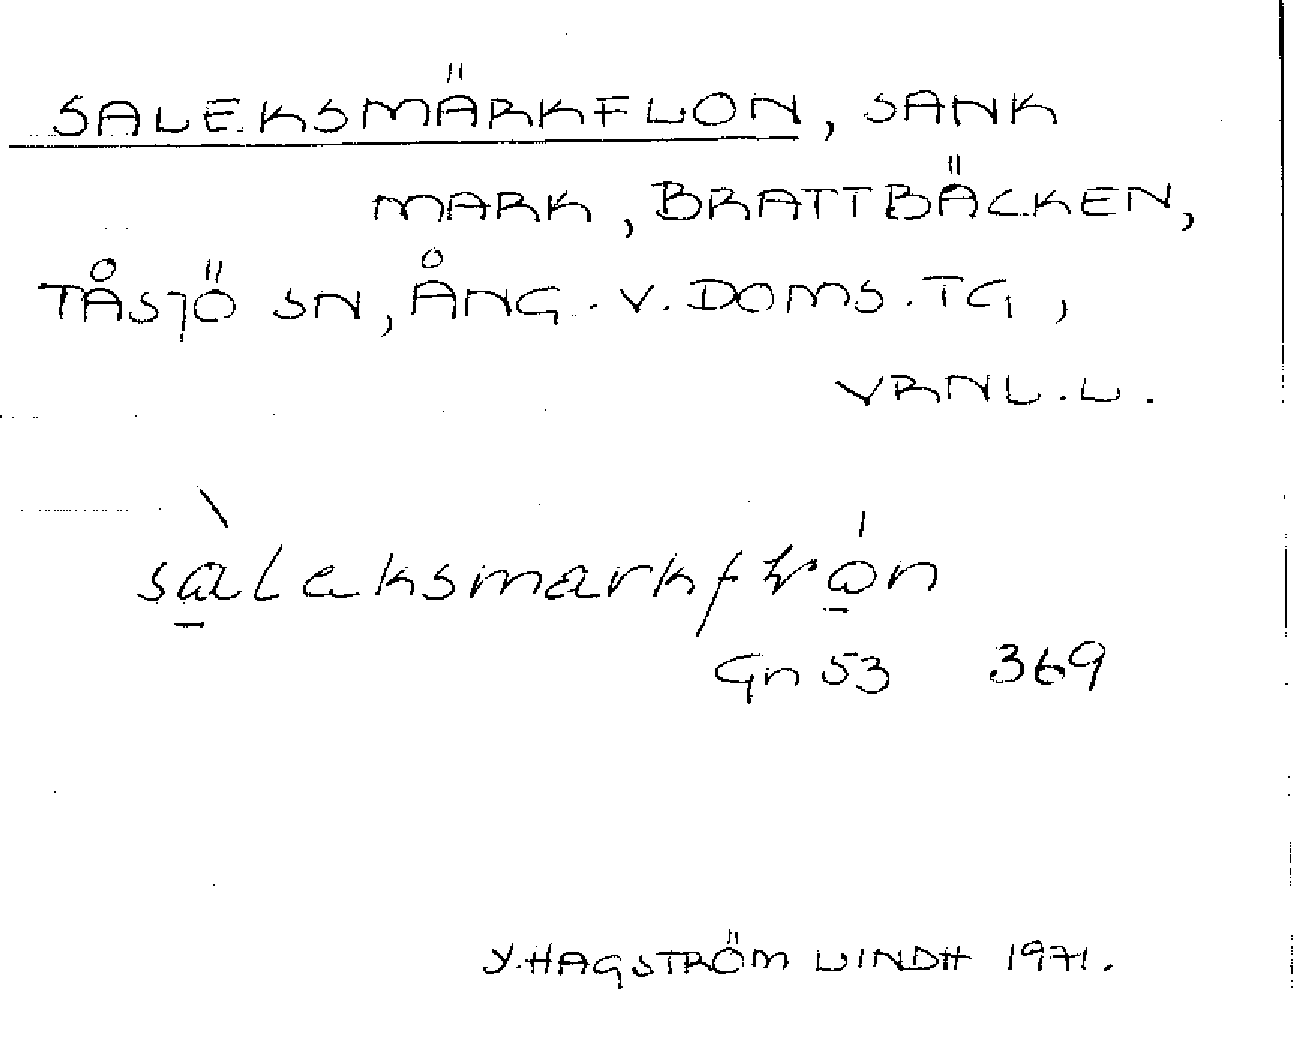 SALEKSMÄRKFLON, SANK
MARK, BRATTBÄCKEN,
TÅSJÖ SN, ÅNG. V. DOMS. TG,
VRNL. L.
sàleksmarkflrón
Gn 53 369
Y. HAGSTRÖM LINDH 1971.